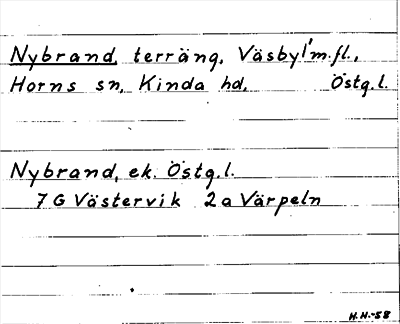 Nybrand, terräng, Väsby1 m.fl.,
Horns sn, Kinda hd, Östg.l.
Nybrand, ek. Östg.l.
7 G Västervik 2 a Värpeln
H.H.-58